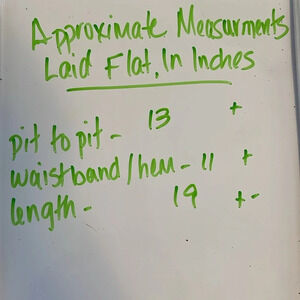 Approximate Measurments
Laid Flat, In Inches
pit to pit - 13 +
waistband/hem - 11 +
length - 19 +-